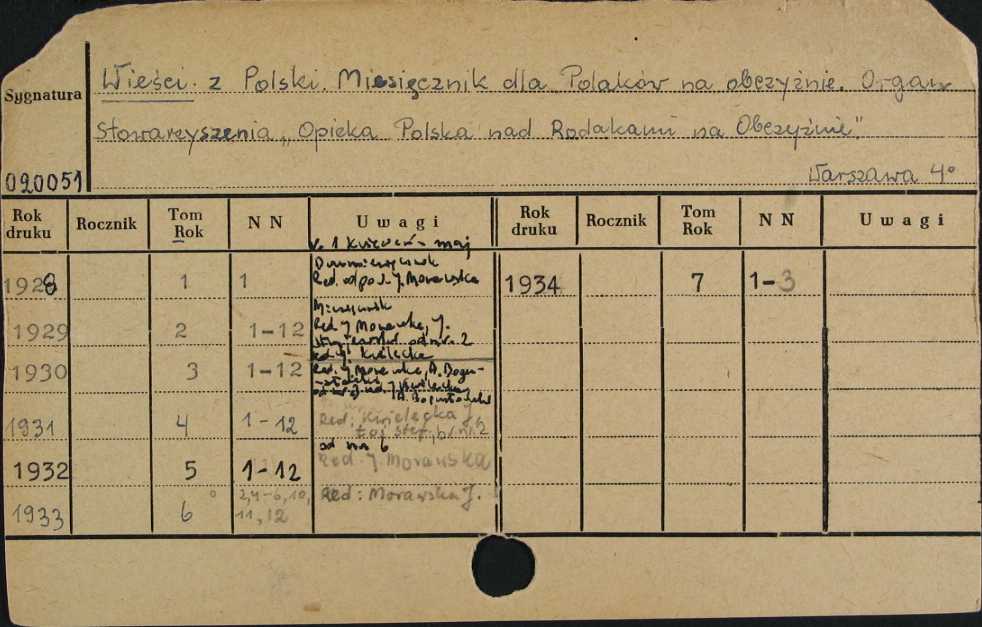 Wieści z Polski. Miesięcznik dla Polaków na obczyźnie. Organ
Sygnatura
Stowarzyszenia „Opieka Polska nad Rodakami na Obczyźnie."
020051
Warszawa 4°
Rok druku Rocznik Tom Rok NN Uwagi Rok druku Rocznik Tom Rok NN Uwagi
1 kwiecień - maj
1928 1 1 Dwumiesięcznik
Red. odpow. J. Morawska
1934 7 1-3
Miesięcznik
1929 2 1-12 Red. J. Morawska, J.
od nr. 2
Red. J. Kisielecka
1930 3 1-12 Red. J. Morawska, A. Bogu-
J. Kisielecka
1931 4 1-12 Red. Kisielecka J.
od nr 6
1932 5 1-12 Red. J. Morawska
1933 6 2,4-6,10, Red: Morawska J.
11,12